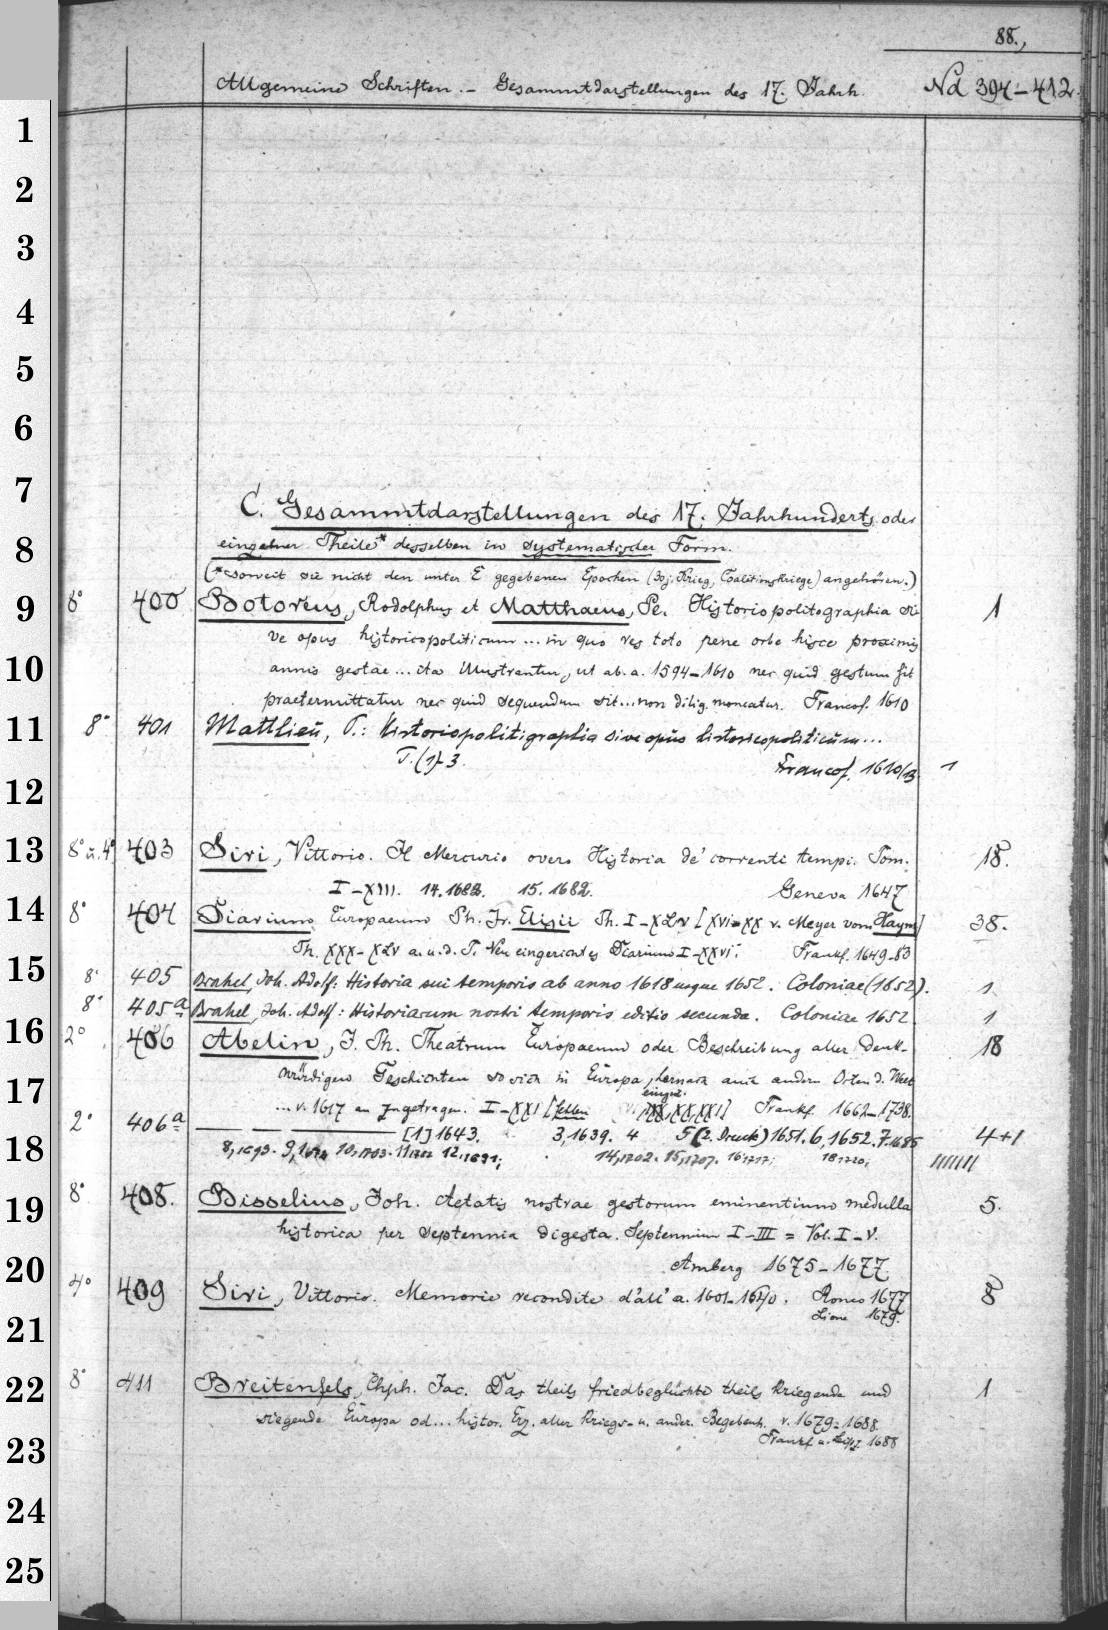 88.,
Allgemeine Schriften. – Gesammtdarstellungen des 17. Jahrh. Nd 394–412.
1
2
3
4
5
6
7
C. Gesammtdarstellungen des 17. Jahrhunderts oder
8
einzelner Theile* desselben in systematischer Form.
(*Soweit sie nicht den unter E gegebenen Epochen (30j. Krieg, Coalitionskriege) angehören.)
9
8° 400 Botoreus, Rodolphus et Matthaeus, Pe. Historiopolitographia si- 1
ve opus historicopoliticum ... in quo res toto pene orbe hisce proximis
10
annis gestae ... ita illustrantur, ut ab. a. 1594–1610 nec quid gestum sit
praetermittatur nec quid sequendum sit ... non dilig. moneatur. Francof. 1610
11
8° 401 Matthieu, P.: Historiopolitigraphia sive opus historicopoliticum ...
T. (1)-3. Francof. 1610/13. 1
12
13
8° u. 4° 403 Siri, Vittorio. Il Mercurio overo Historia de' correnti tempi. Tom. 18.
I–XIII. 14. 1682. 15. 1682. Geneva 1647
14
8° 404 Diarium Europaeum Ph. Fr. Elisii Th. I–XLV [XVI–XX v. Meyer vom Haym] 38.
Th. XXX–XLV a. u. d. T. Neu eingerichtes Diarium I–XXVI. Frankf. 1649–83
15
8° 405 Brahel, Joh. Adolf: Historia sui temporis ab anno 1618 usque 1652. Coloniae (1652). 1
8° 405a Brahel, Joh. Adolf: Historiarum nostri temporis editio secunda. Coloniae 1652. 1
16
2° 406 Abelin, J. Ph. Theatrum Europaeum oder Beschreibung aller Denk- 18
würdigen Geschichten so sich in Europa, hernach auch andern Orten d. Welt
17
... v. 1617 an zugetragen. I–XXI [fehlen XX, XXI] Frankf. 1662–1738.
2° 406a [1] 1643. 3, 1639. 4 5 (2. Druck) 1651. 6, 1652. 7. 1685 4+1
18
8, 1693. 9, 10, 1703. 11 1707 12. 1691; 14, 1702. 15, 1707. 16 1717; 18 1720;
19
8° 408. Bisselius, Joh. Aetatis nostrae gestorum eminentium medulla 5.
historica per septennia digesta. Septennium I–III = Vol. I–V.
20
Amberg 1675–1677
4° 409 Siri, Vittorio. Memorie recondite dall' a. 1601–1640. Ronco 1677 8
Lione 1679.
21
22
8° 411 Breitenfels, Chph. Jac. Das theils friedbeglückte theils kriegende und 1
siegende Europa od... histor. Erz. aller Kriegs- u. ander. Begebenh. v. 1679–1688.
23
Frankf. u. Leipz 1688
24
25